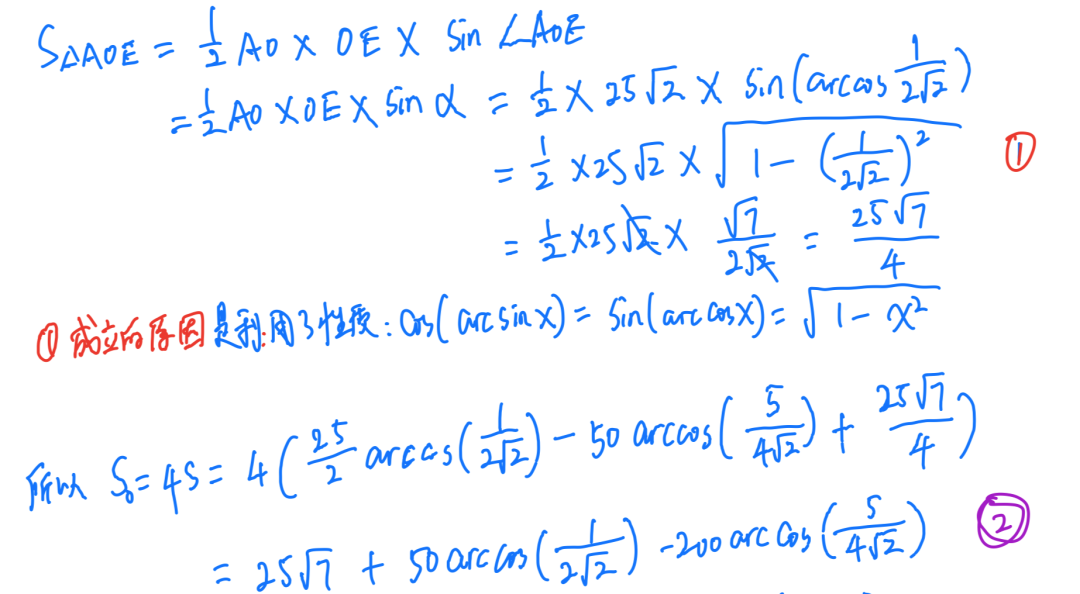 S△AOE = 1/2 AO × OE × sin ∠AOE
= 1/2 AO × OE × sin α = 1/2 × 25√2 × sin(arccos 1/(2√2))
= 1/2 × 25√2 × √(1 - (1/(2√2))²) ①
= 1/2 × 25√2 × √7/(2√2) = 25√7/4
① 成立的原因是利用了性质: cos(arcsin x) = sin(arccos x) = √(1 - x²)
所以 S₀ = 4S = 4(25/2 arccos(1/(2√2)) - 50 arccos(5/(4√2)) + 25√7/4)
= 25√7 + 50 arccos(1/(2√2)) - 200 arccos(5/(4√2)) ②